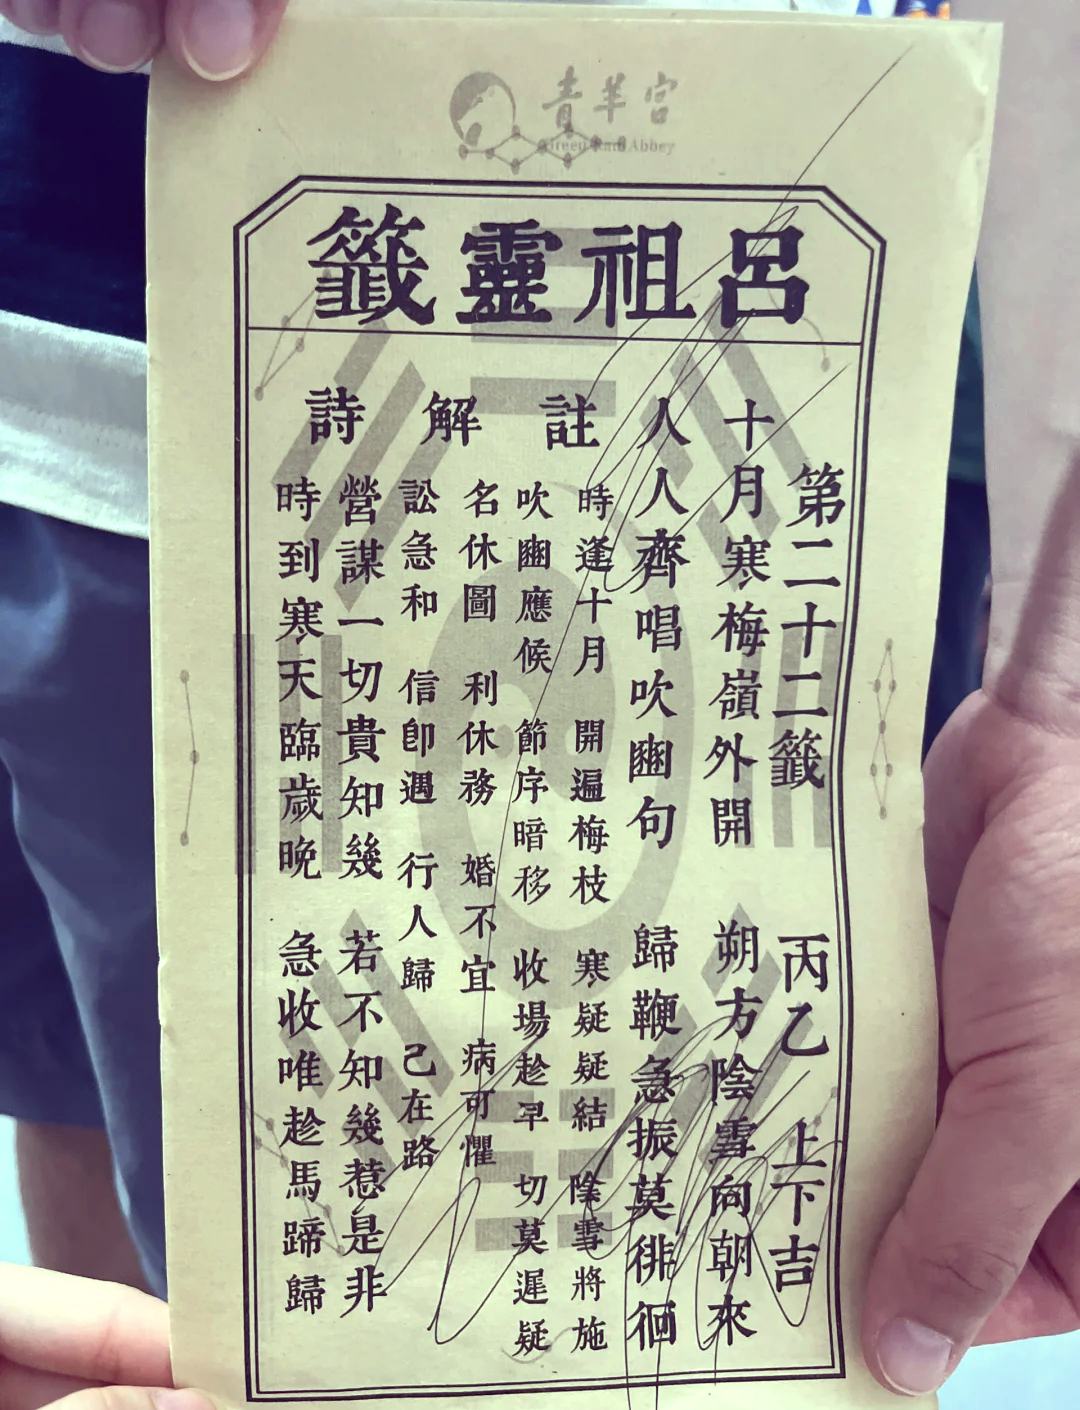 青羊宮
Green Ram Abbey
呂祖靈籤
第二十二籤 丙乙 上下吉
十月寒梅嶺外開 朔方陰雲向朝來
人人齊唱吹豳句 歸鞭急振莫徘徊
註
時逢十月 開遍梅枝 寒疑疑結 陰雪將施
吹豳應候 節序暗移 收場趁早 切莫遲疑
解
名休圖 利休務 婚不宜 病可懼
訟急和 信即遇 行人歸 己在路
詩
營謀一切貴知幾 若不知幾惹是非
時到寒天臨歲晚 急收唯趁馬蹄歸